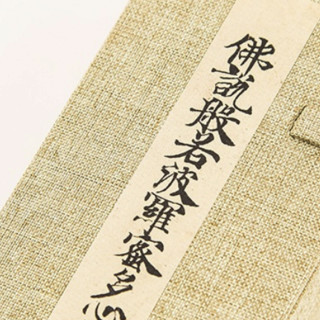 佛說般若波羅蜜多心